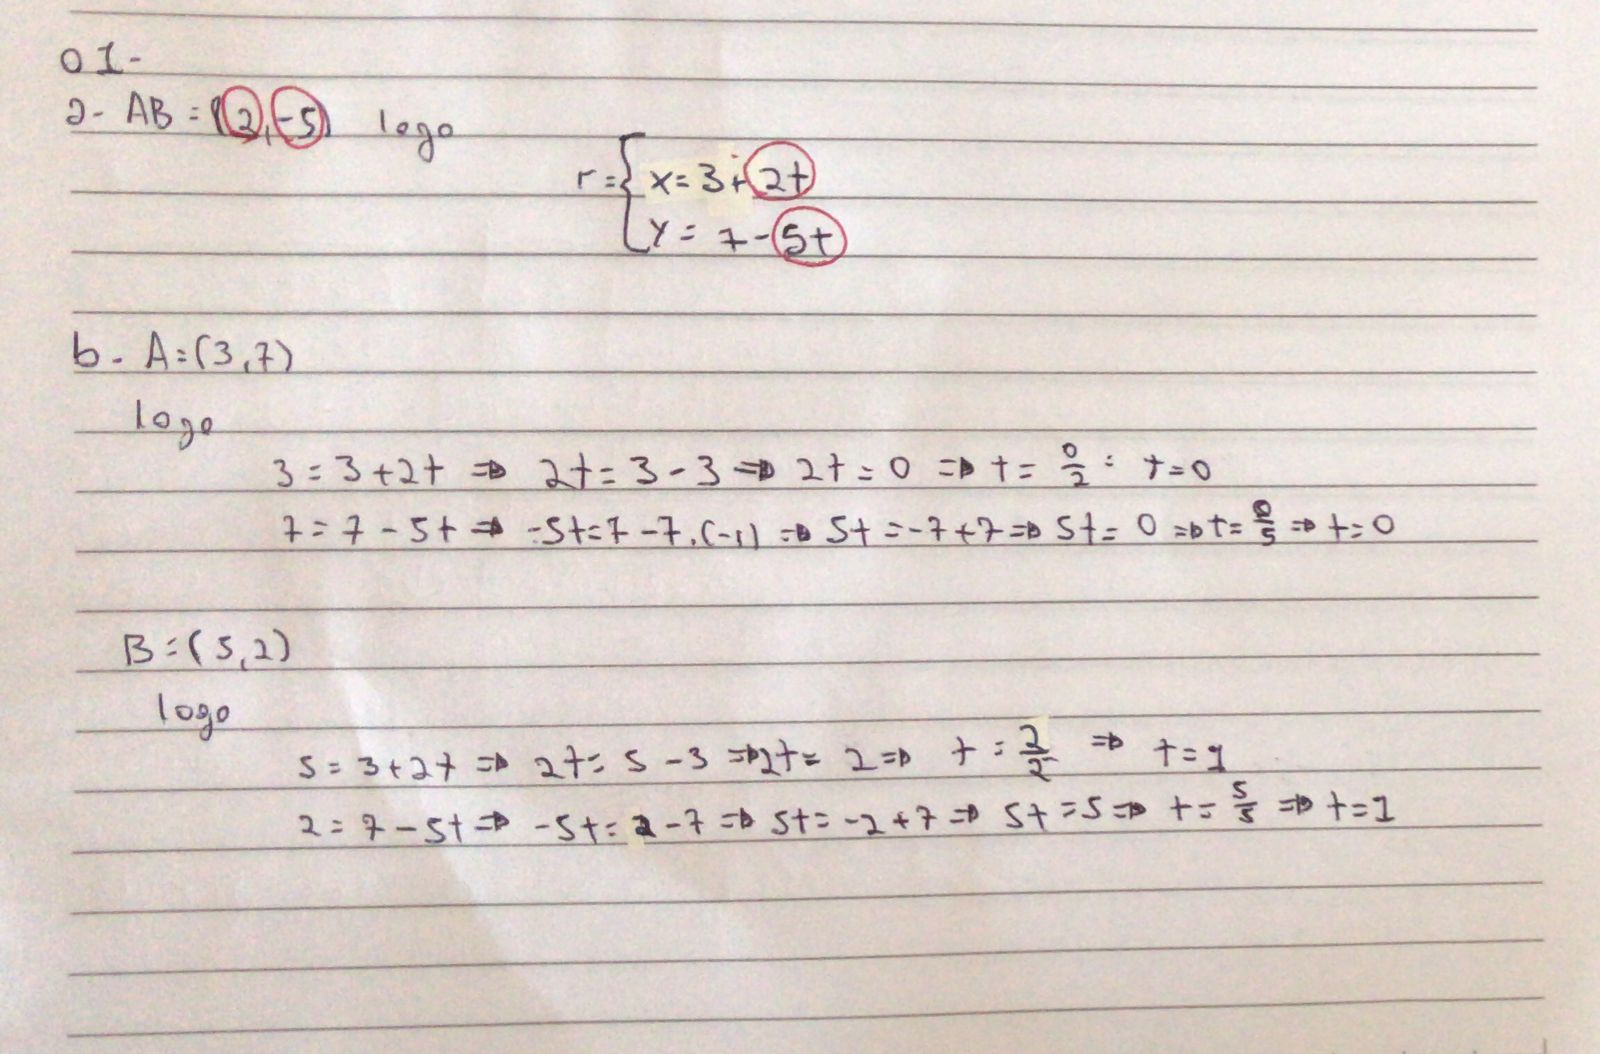 01-
a- AB = (2,-5) logo
r = { x = 3 + 2t
y = 7 - 5t
b- A = (3,7)
logo
3 = 3 + 2t ⇒ 2t = 3 - 3 ⇒ 2t = 0 ⇒ t = 0/2 = t = 0
7 = 7 - 5t ⇒ -5t = 7 - 7 .(-1) ⇒ 5t = -7 + 7 ⇒ 5t = 0 ⇒ t = 0/5 ⇒ t = 0
B = (5,2)
logo
5 = 3 + 2t ⇒ 2t = 5 - 3 ⇒ 2t = 2 ⇒ t = 2/2 ⇒ t = 1
2 = 7 - 5t ⇒ -5t = 2 - 7 ⇒ 5t = -2 + 7 ⇒ 5t = 5 ⇒ t = 5/5 ⇒ t = 1